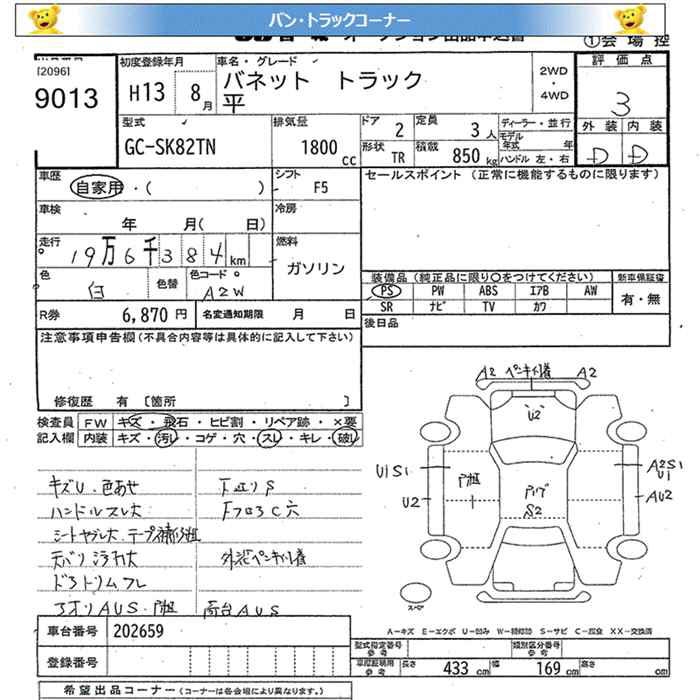 バン・トラックコーナー
オークション出品申込書
①会場控
[2096]
9013
初度登録年月
H13 8月
車名・グレード
バネット トラック
平
2WD
・
4WD
評価点
3
外装 内装
D D
型式
GC-SK82TN
排気量
1800 cc
ドア 2
定員 3人
形状 TR
積載 850 kg
ディーラー・並行
モデル年式 年
ハンドル 左・右
車歴
自家用・( )
シフト
F5
車検
年 月( 日)
冷房
走行
19万6千384km
燃料
ガソリン
色
白
色替
色コード
A2W
R券 6,870円
名変通知期限 月 日
セールスポイント (正常に機能するものに限ります)
装備品 (純正品に限り〇をつけてください)
新車保証書
PS PW ABS エアB AW
SR ナビ TV カワ
有・無
後日品
注意事項申告欄 (不具合内容等は具体的に記入して下さい)
修復歴 有 〔箇所 〕
検査員記入欄
FW キズ・飛石・ヒビ割・リペア跡・×要
内装 キズ・汚レ・コゲ・穴・スレ・キレ・破レ
キズU・色あせ
ハンドルスレ大
シートヤブレ大
テープ補修
天バリ
外装ペンキ
アオリAUS
荷台AUS
A2 A2
U2
U1S1
U2
S2
A2S1
U1
AU2
スペア
A-キズ E-エクボ U-凹み W-補修跡 S-サビ C-腐食 XX-交換済
車台番号 202659
登録番号
型式指定番号 参考
類別区分番号 参考
車庫証明用 参考 長さ 433 cm 幅 169 cm 高さ cm
希望出品コーナー (コーナーは各会場により異なります。)